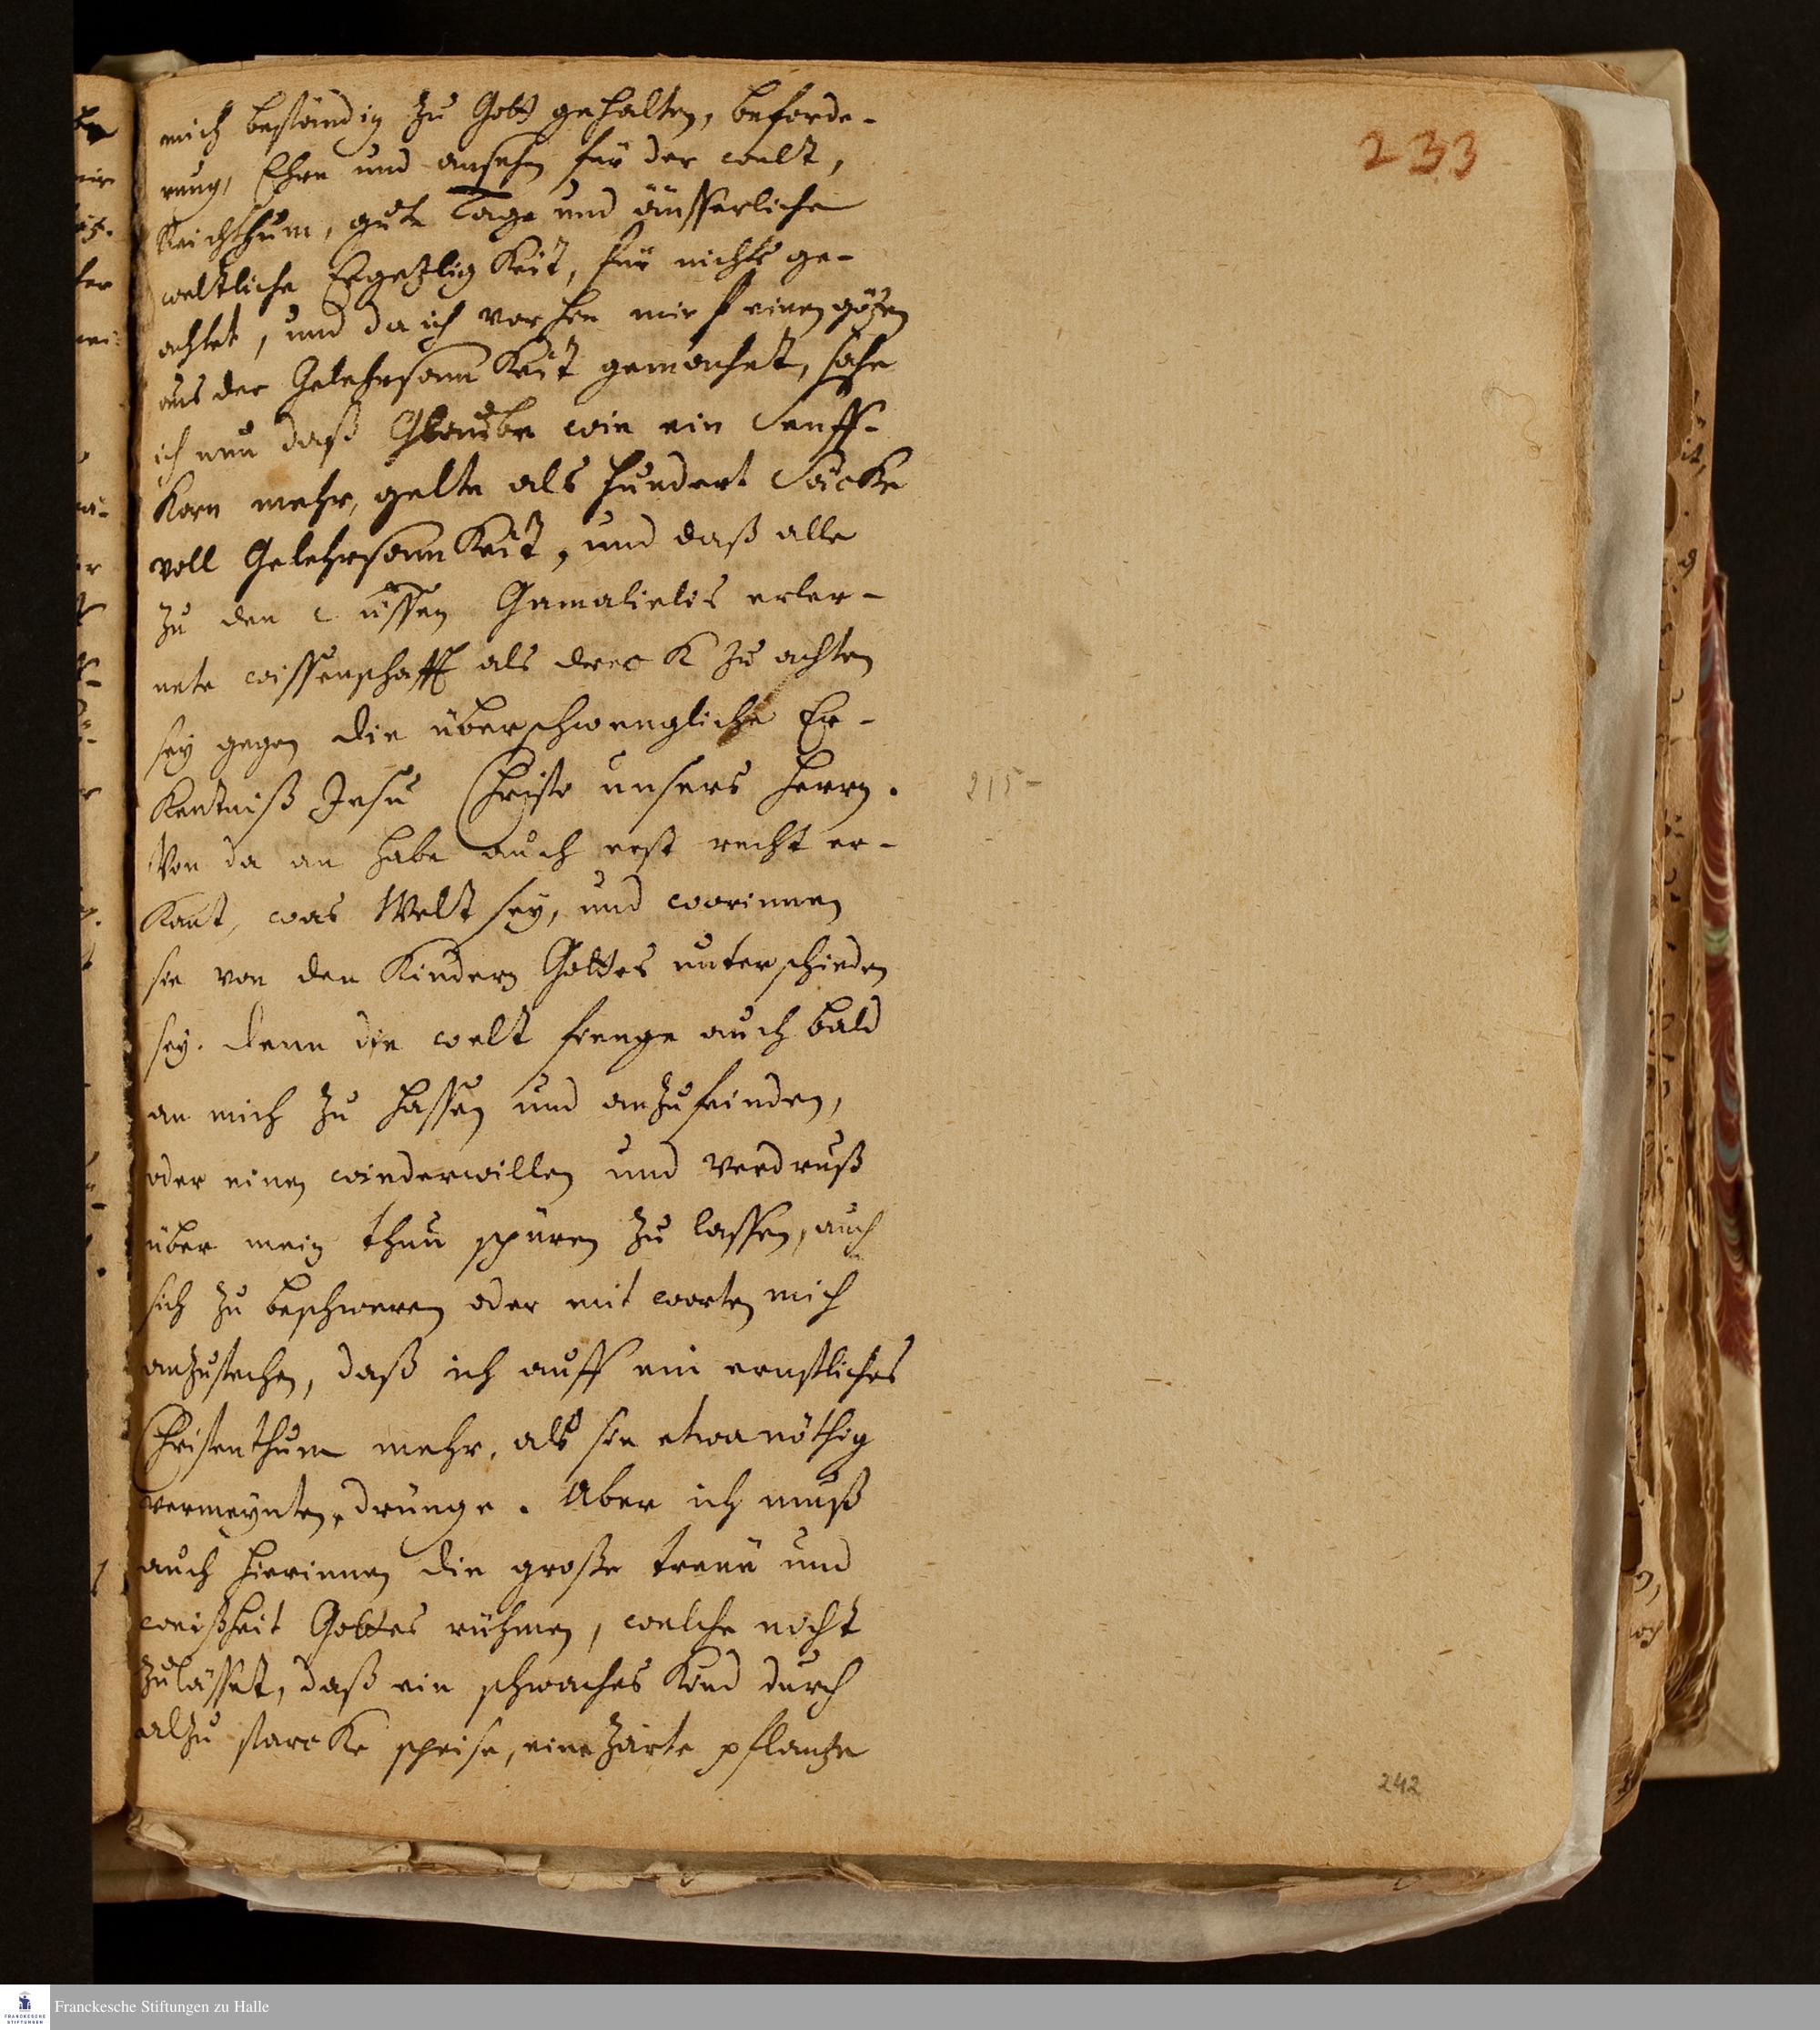 mich beständig zu Gott gehalten, beforde-
rung, Ehre und ansehen für der welt,
Reichthum, gute Tage und äusserliche
weltliche Ergetzligkeit, für nichts ge-
achtet, und da ich vorhin mir einen götzen
aus der Gelehrsamkeit gemachet, sahe
ich nun daß Glaube wie ein Senff-
korn mehr, gelte als hundert Säcke
voll Gelehrsamkeit, und daß alle
zu den füssen Gamalielis erler-
nete wissenschafft als dreck zu achten
sey gegen die überschwengliche Er-
kentniß Jesu Christi unsers Herrn.
Von da an habe auch erst recht er-
kant, was Welt sey, und worinnen
sie von den Kindern Gottes unterschieden
sey. denn die welt fienge auch bald
an mich zu hassen und anzufeinden,
oder einen wiederwillen und verdruß
über mein thun spüren zu lassen, auch
sich zu beschweren oder mit worten mich
anzustechen, daß ich auff ein ernstliches
Christenthum mehr, als sie etwa nöthig
vermeynten, drunge. Aber ich muß
auch hierinnen die große treue und
weißheit Gottes rühmen, welche nicht
zulässet, daß ein schwaches Kind durch
alzu starcke speise, eine zarte pflantze
233
215-
242
Franckesche Stiftungen zu Halle
FRANCKESCHE
STIFTUNGEN